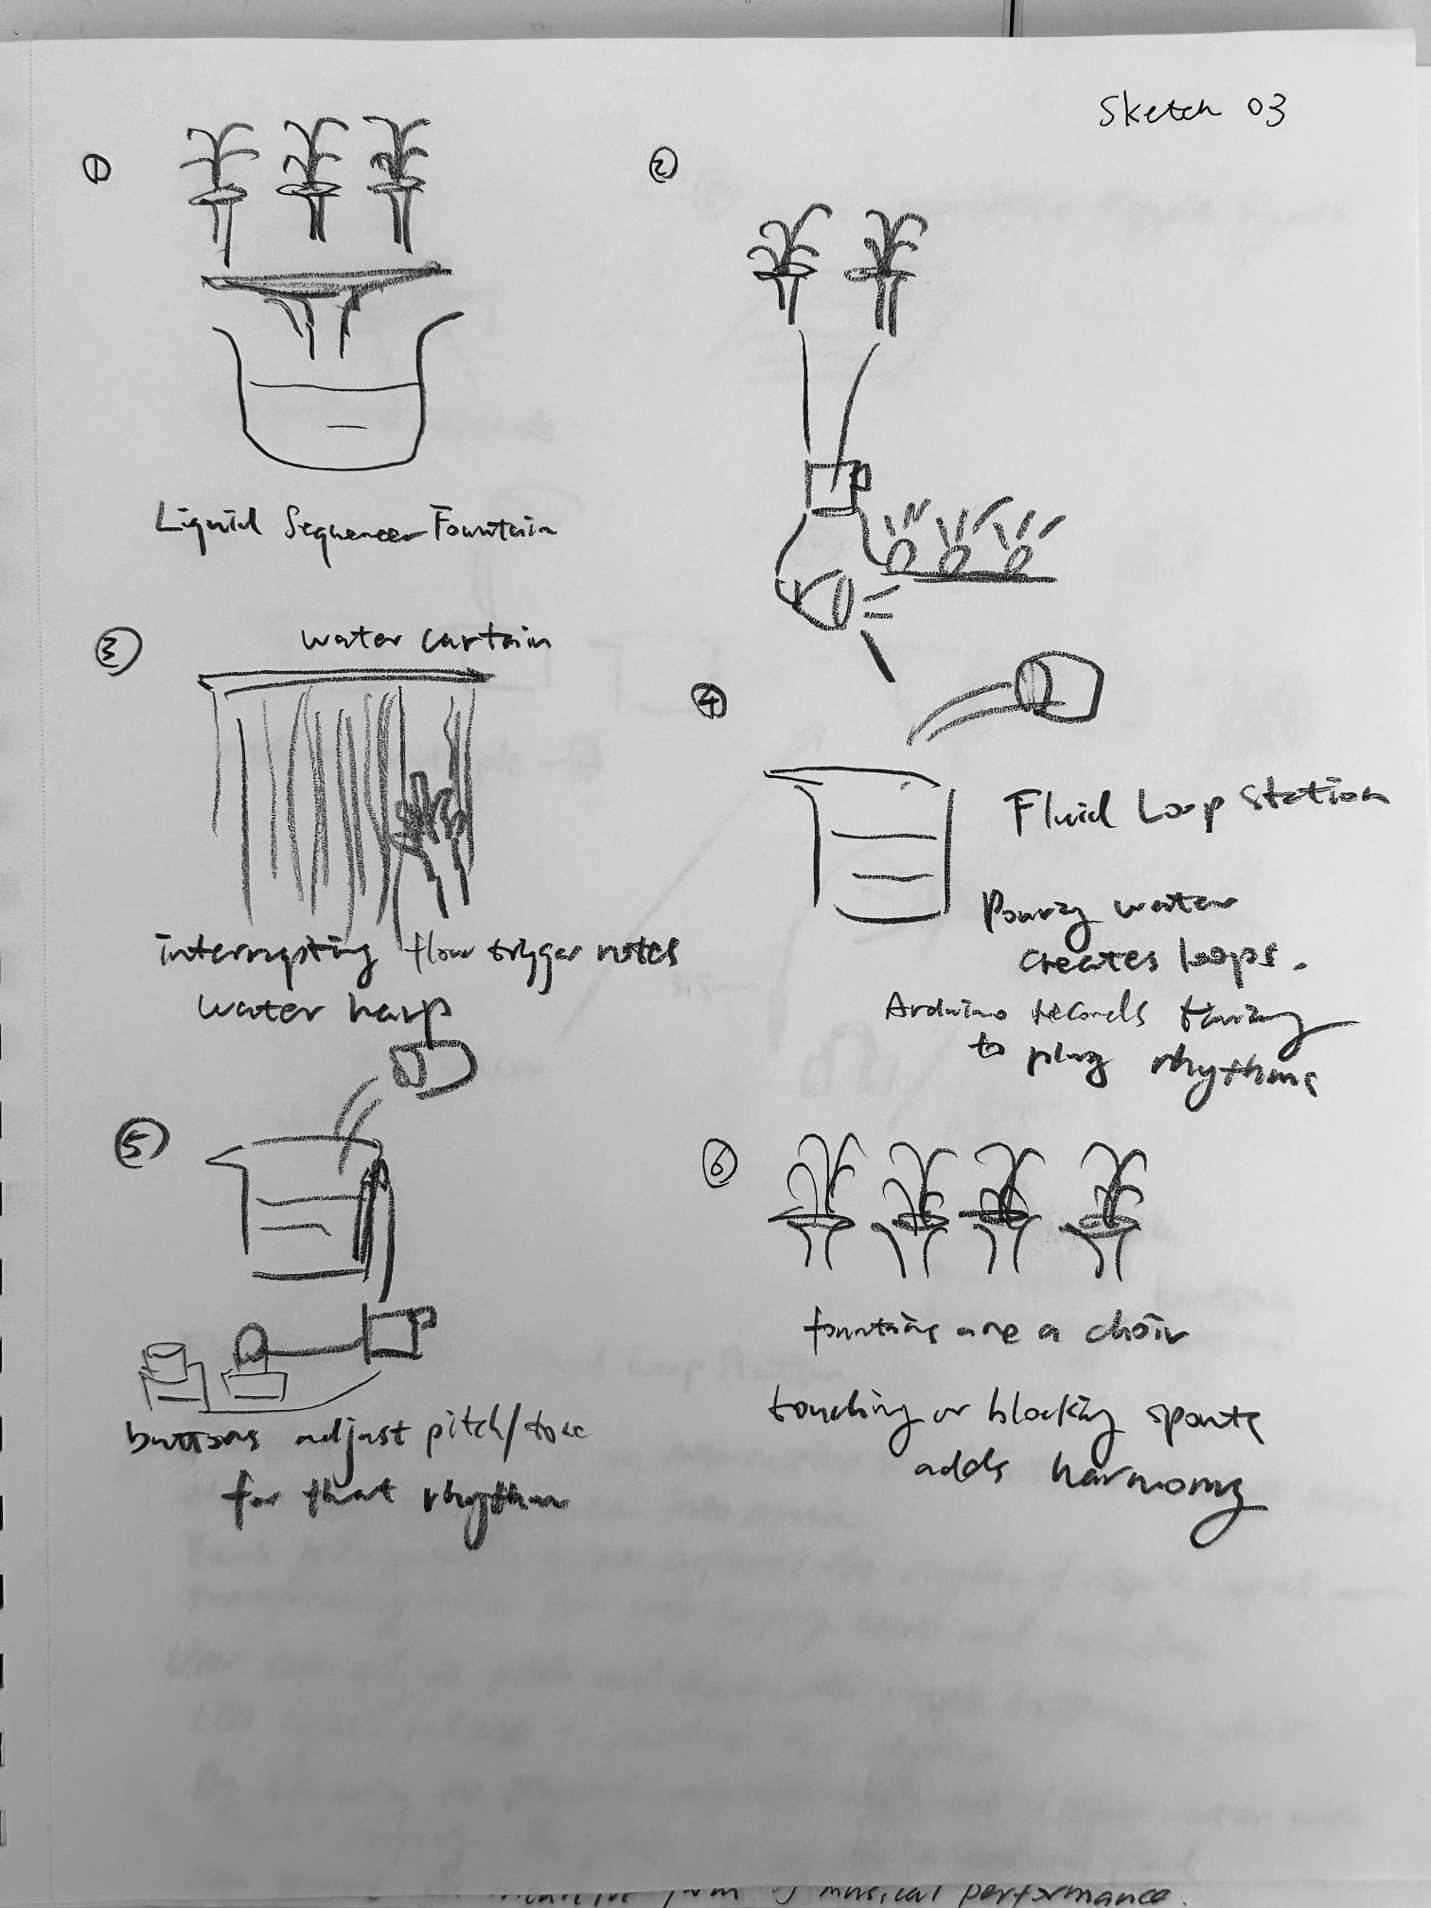 Sketch 03
①
Liquid Sequencer Fountain
②
③
water curtain
interrupting flow trigger notes
water harp
④
Fluid Loop Station
Pouring water
creates loops.
Arduino records timing
to play rhythms
⑤
buttons adjust pitch/tone
for that rhythm
⑥
fountains are a choir
touching or blocking spouts
adds harmony
form of musical performance.